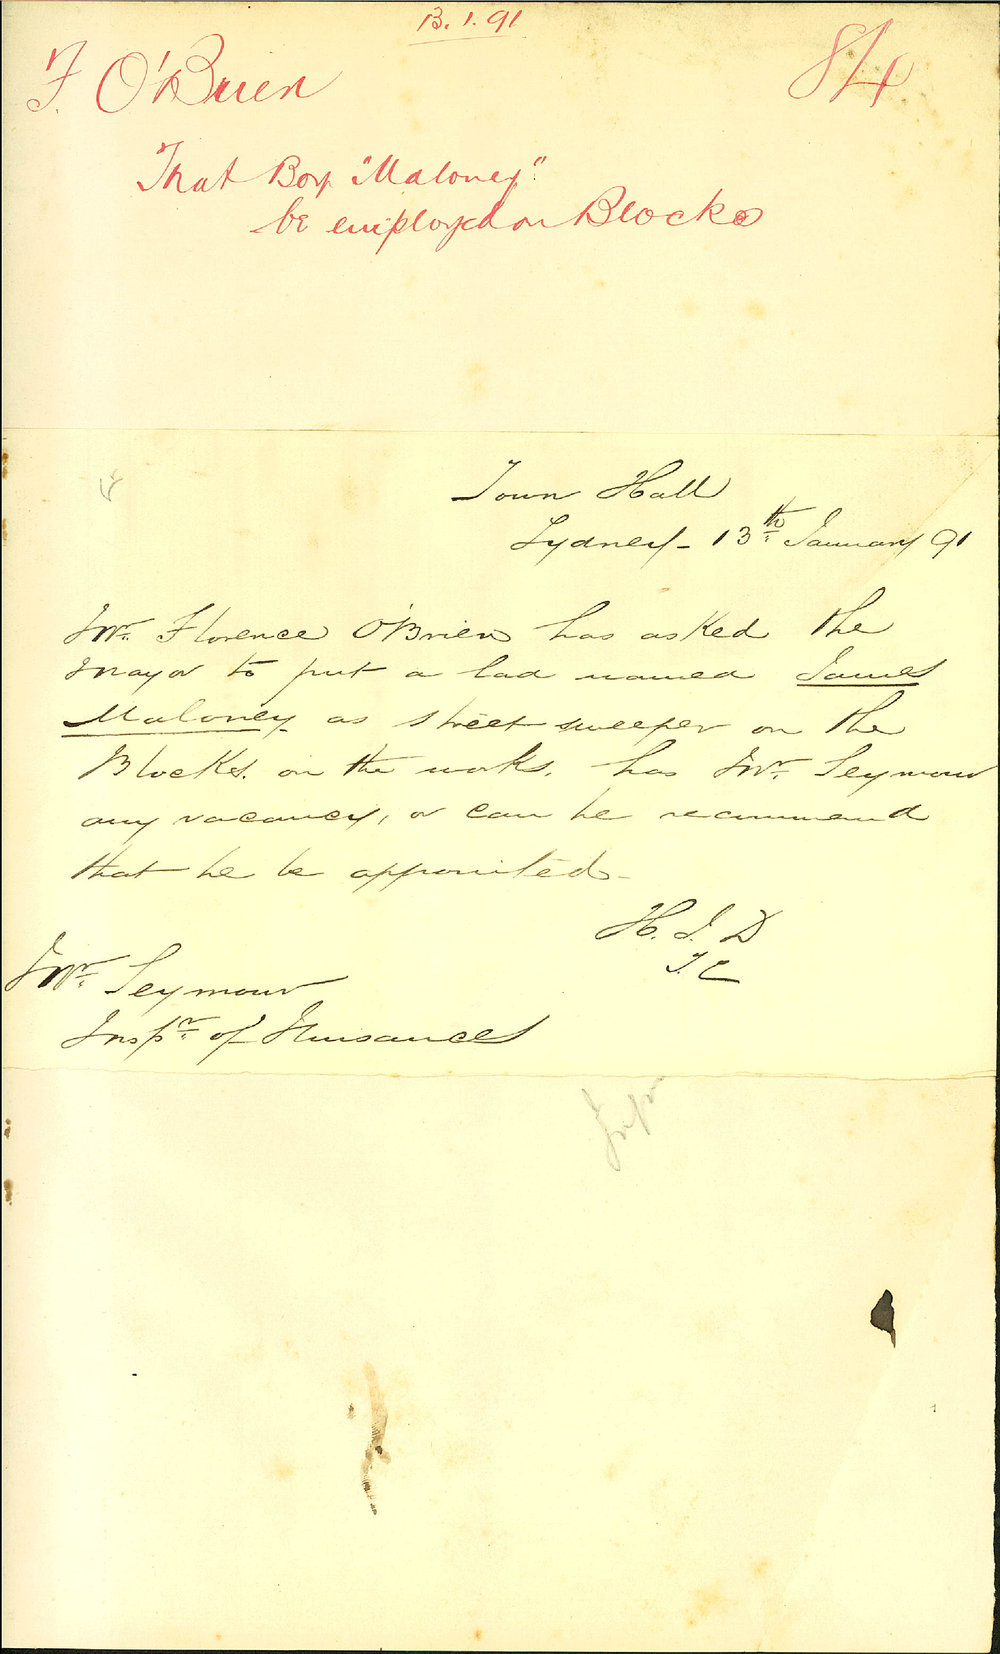 13.1.91
F. O'Brien
84
That Boy "Maloney"
be employed on Blocks
Town Hall
Sydney - 13th January 91
Mr. Florence O'Brien has asked the
Mayor to put a lad named James
Maloney as street sweeper on the
Blocks. on the works. has Mr. Seymour
any vacancy, or can he recommend
that he be appointed -
H. J. D
T. C
Mr. Seymour
Inspr. of Nuisances